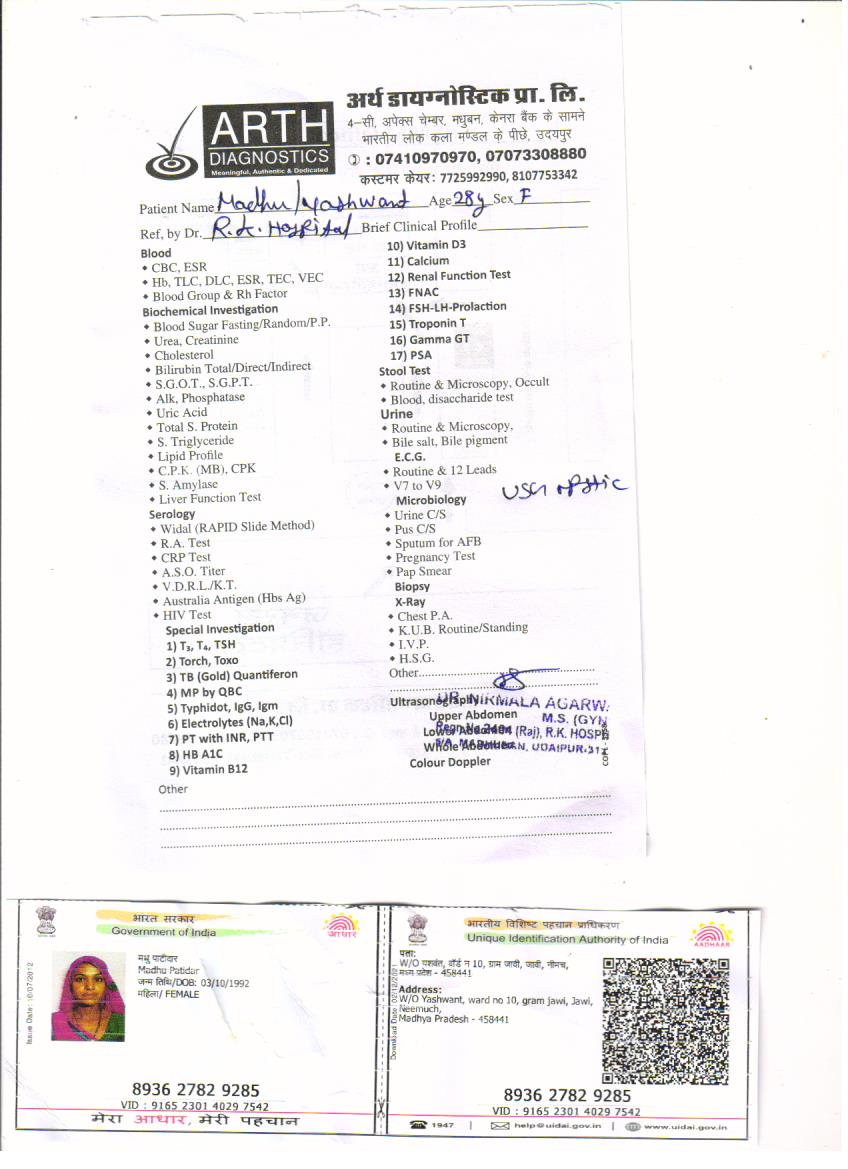 अर्थ डायग्नोस्टिक प्रा. लि.
ARTH
DIAGNOSTICS
Meaningful, Authentic & Dedicated
4-सी, अपेक्स चेम्बर, मधुबन, केनरा बैंक के सामने
भारतीय लोक कला मण्डल के पीछे, उदयपुर
: 07410970970, 07073308880
कस्टमर केयर: 7725992990, 8107753342
Patient Name Madhu/Yashwant Age 28y Sex F
Ref, by Dr. R.K. Hospital Brief Clinical Profile
Blood
CBC, ESR
Hb, TLC, DLC, ESR, TEC, VEC
Blood Group & Rh Factor
Biochemical Investigation
Blood Sugar Fasting/Random/P.P.
Urea, Creatinine
Cholesterol
Bilirubin Total/Direct/Indirect
S.G.O.T., S.G.P.T.
Alk, Phosphatase
Uric Acid
Total S. Protein
S. Triglyceride
Lipid Profile
C.P.K. (MB), CPK
S. Amylase
Liver Function Test
Serology
Widal (RAPID Slide Method)
R.A. Test
CRP Test
A.S.O. Titer
V.D.R.L./K.T.
Australia Antigen (Hbs Ag)
HIV Test
Special Investigation
1) T3, T4, TSH
2) Torch, Toxo
3) TB (Gold) Quantiferon
4) MP by QBC
5) Typhidot, IgG, Igm
6) Electrolytes (Na,K,Cl)
7) PT with INR, PTT
8) HB A1C
9) Vitamin B12
Other
10) Vitamin D3
11) Calcium
12) Renal Function Test
13) FNAC
14) FSH-LH-Prolaction
15) Troponin T
16) Gamma GT
17) PSA
Stool Test
Routine & Microscopy, Occult
Blood, disaccharide test
Urine
Routine & Microscopy,
Bile salt, Bile pigment
E.C.G.
Routine & 12 Leads
V7 to V9
USG
Microbiology
Urine C/S
Pus C/S
Sputum for AFB
Pregnancy Test
Pap Smear
Biopsy
X-Ray
Chest P.A.
K.U.B. Routine/Standing
I.V.P.
H.S.G.
Other
Ultrasonography
DR. NIRMALA AGARW
Upper Abdomen
M.S. (GYN
Lower Abdomen
(Raj), R.K. HOSP
Whole Abdomen
UDAIPUR-31
Colour Doppler
भारत सरकार
Government of India
आधार
Issue Date: 10/07/2012
मधु पाटीदार
Madhu Patidar
जन्म तिथि/DOB: 03/10/1992
महिला/ FEMALE
8936 2782 9285
VID : 9165 2301 4029 7542
मेरा आधार, मेरी पहचान
भारतीय विशिष्ट पहचान प्राधिकरण
Unique Identification Authority of India
AADHAAR
पता:
W/O यशवंत, वॉर्ड न 10, ग्राम जावी, जावी, नीमच,
मध्य प्रदेश - 458441
Address:
W/O Yashwant, ward no 10, gram jawi, Jawi,
Neemuch,
Madhya Pradesh - 458441
Download Date
8936 2782 9285
VID : 9165 2301 4029 7542
1947 | help@uidai.gov.in | www.uidai.gov.in